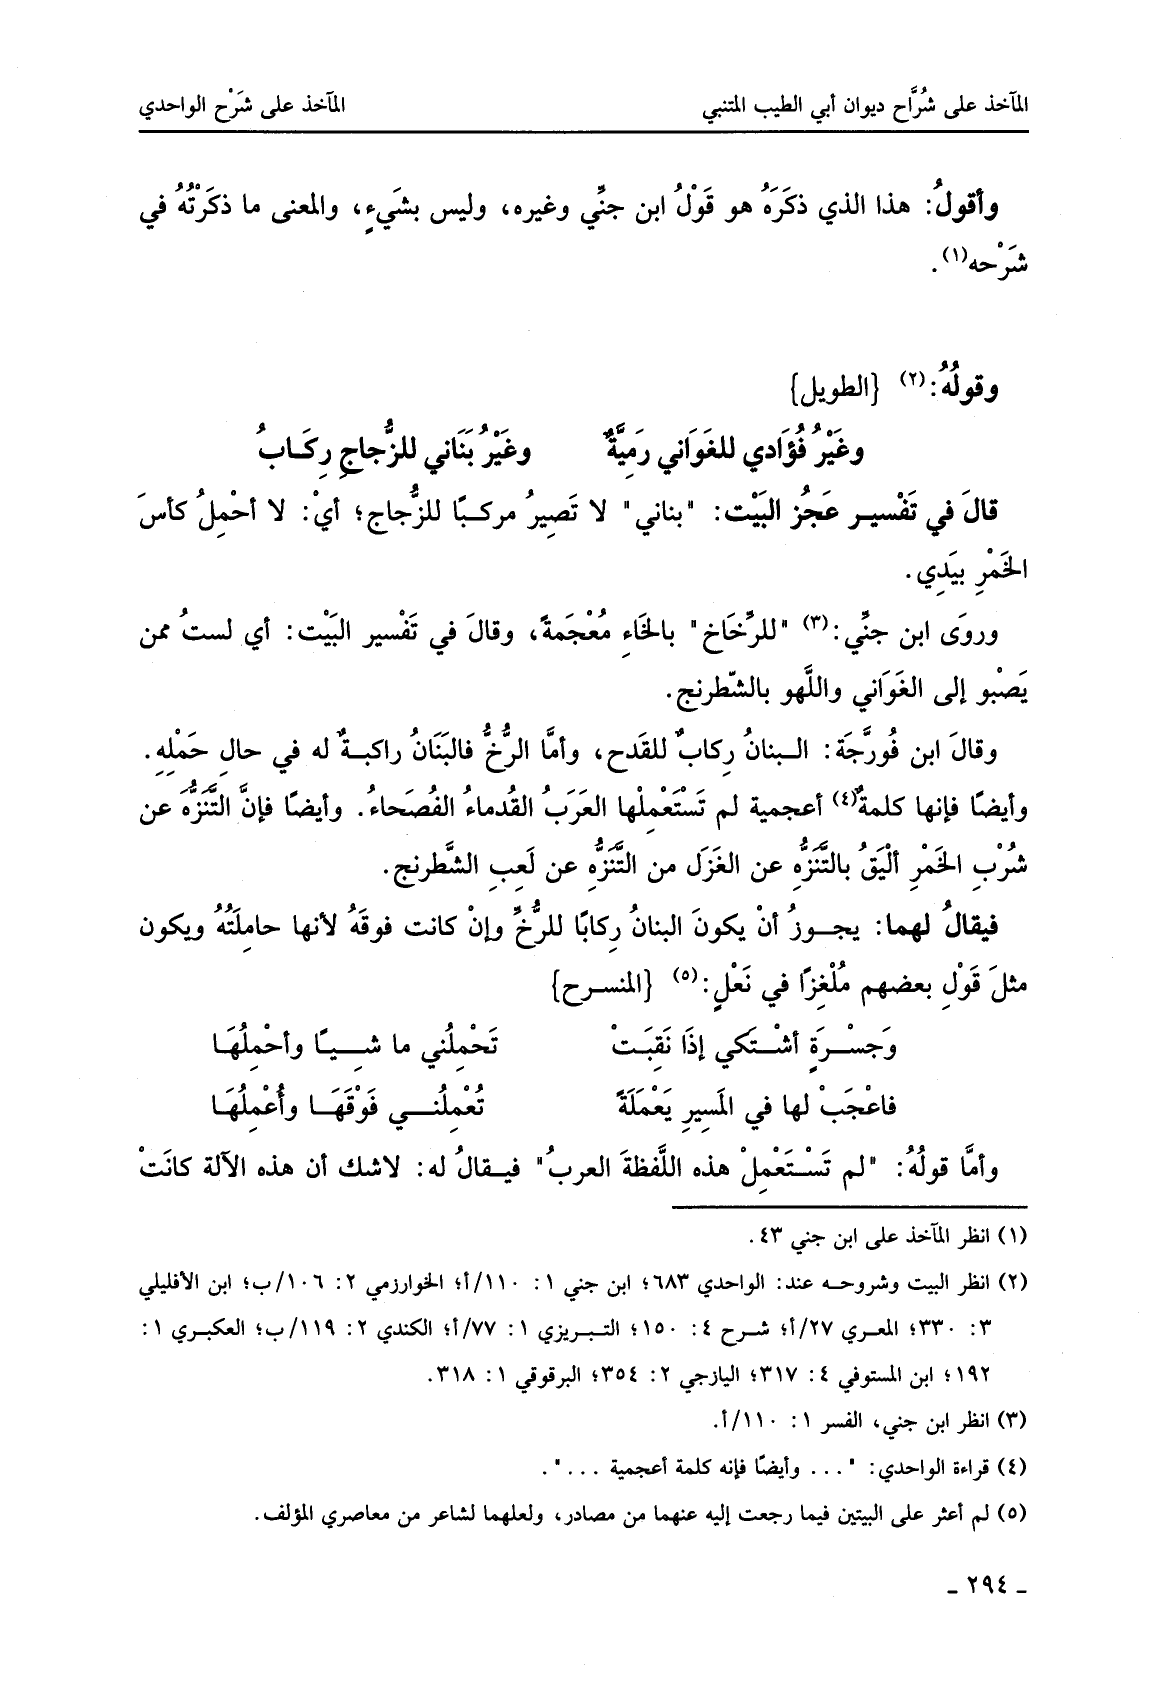 المآخذ على شُرَّاح ديوان أبي الطيب المتنبي المآخذ على شَرْح الواحدي
وأقولُ: هذا الذي ذكَرَهُ هو قَوْلُ ابن جنِّي وغيره، وليس بشَيءٍ، والمعنى ما ذكَرْتُهُ في
شَرْحه(١).
وقولُهُ:(٢) {الطويل}
وغَيْرُ فُؤَادي للغَوَاني رَمِيَّةٌ وغَيْرُ بَنَاني للزُّجاجِ رِكَـابُ
قالَ في تَفْسيـر عَجُز البَيْت: "بناني" لا تَصِيرُ مركـبًا للزُّجاج؛ أيْ: لا أحْمِلُ كأسَ
الخَمْرِ بيَدِي.
وروَى ابن جنِّي:(٣) "للرِّخَاخ" بالخَاءِ مُعْجَمةً، وقالَ في تَفْسير البَيْت: أي لستُ ممن
يَصْبو إلى الغَوَاني واللَّهو بالشّطرنج.
وقالَ ابن فُورَّجَة: الـبنانُ رِكابٌ للقَدح، وأمَّا الرُّخُّ فالبَنَانُ راكبـةٌ له في حالِ حَمْلِهِ.
وأيضًا فإنها كلمةٌ(٤) أعجمية لم تَسْتَعْمِلْها العَرَبُ القُدماءُ الفُصَحاءُ. وأيضًا فإنَّ التَّنَزُّهَ عن
شُرْبِ الخَمْرِ ألْيَقُ بالتَّنَزُّهِ عن الغَزَل من التَّنَزُّهِ عن لَعِبِ الشَّطرنج.
فيقالُ لهما: يجـوزُ أنْ يكونَ البنانُ رِكابًا للرُّخِّ وإنْ كانت فوقَهُ لأنها حامِلَتُهُ ويكون
مثلَ قَوْلِ بعضهم مُلْغِزًا في نَعْلٍ:(٥) {المنسرح}
وَجَسْـرَةٍ أشْـتَكي إذَا نَقِبَـتْ تَحْمِلُني ما شِـيـًا وأحْمِلُهَـا
فاعْجَبْ لها في المَسِيرِ يَعْمَلَةً تُعْمِلُنـي فَوْقَهَـا وأُعْمِلُهَـا
وأمَّا قولُهُ: "لم تَسْـتَعْمِلْ هذه اللَّفظةَ العربُ" فيـقالُ له: لاشك أن هذه الآلة كانَتْ
(١) انظر المآخذ على ابن جني ٤٣.
(٢) انظر البيت وشروحـه عند: الواحدي ٦٨٣؛ ابن جني ١: ١١٠/أ؛ الخوارزمي ٢: ١٠٦/ب؛ ابن الأفليلي
٣: ٣٣٠؛ المعـري ٢٧/أ؛ شـرح ٤: ١٥٠؛ التـبـريزي ١: ٧٧/أ؛ الكندي ٢: ١١٩/ب؛ العكبـري ١:
١٩٢؛ ابن المستوفي ٤: ٣١٧؛ اليازجي ٢: ٣٥٤؛ البرقوقي ١: ٣١٨.
(٣) انظر ابن جني، الفسر ١: ١١٠/أ.
(٤) قراءة الواحدي: "... وأيضًا فإنه كلمة أعجمية ...".
(٥) لم أعثر على البيتين فيما رجعت إليه عنهما من مصادر، ولعلهما لشاعر من معاصري المؤلف.
ـ ٢٩٤ ـ